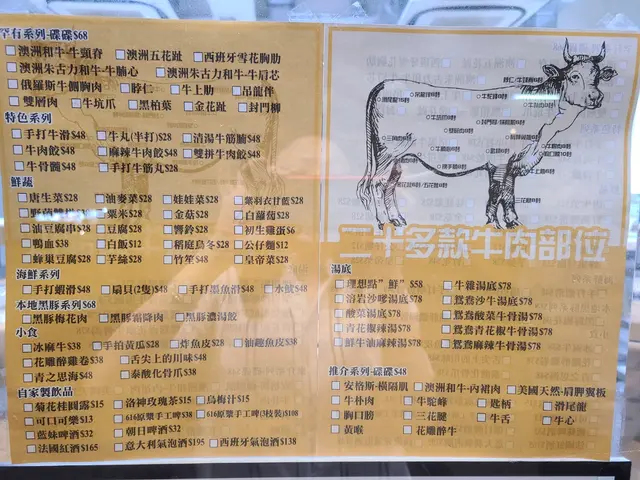 罕有系列-碟碟$68
澳洲和牛-牛頸脊 澳洲五花趾 西班牙雪花胸肋
澳洲朱古力和牛-牛腩心 澳洲朱古力和牛-肩芯
俄羅斯牛側胸肉 脖仁 牛上肋 吊龍伴
雙層肉 牛坑爪 黑柏葉 金花趾 封門柳
特色系列
手打牛滑$48 牛丸(半打)$28 清湯牛筋腩$48
牛肉餃$48 麻辣牛肉餃$48 雙拼牛肉餃$48
牛骨髓$48 手打牛筋丸$28
鮮蔬
唐生菜$28 油麥菜$28 娃娃菜$28 紫羽衣甘藍$28
粟米$28 金菇$28 白蘿蔔$28
油豆腐串$28 豆腐$28 響鈴$28 初生雞蛋$6
鴨血$38 白飯$12 稻庭烏冬$28 公仔麵$12
蜂巢豆腐$28 芋絲$28 竹笙$48 皇帝菜$28
海鮮系列
手打蝦滑$48 扇貝(2隻)$48 手打墨魚滑$48 水魷$48
本地黑豚系列$68
黑豚梅花肉 黑豚霜降肉 黑豚濃湯餃
小食
冰麻牛$38 手拍黃瓜$28 炸魚皮$28 油趣魚皮$38
花雕醉雞卷$38 舌尖上的川味$48
青之思海$48 泰酸化骨爪$38
自家製飲品
菊花桂圓露$15 洛神玫瑰茶$15 烏梅汁$15
可口可樂$13 616原漿手工啤$38 616原漿手工啤(3枝裝)$108
藍妹啤酒$32 朝日啤酒$32
法國紅酒$165 意大利氣泡酒$195 西班牙氣泡酒$138
二十多款牛肉部位
湯底
理想點”鮮”$58 牛雜湯底$78
溶岩沙嗲湯底$78 鴛鴦沙牛湯底$78
酸菜湯底$78 鴛鴦酸菜牛骨湯$78
青花椒辣湯$78 鴛鴦青花椒牛骨湯$78
鮮牛油麻辣湯$78 鴛鴦麻辣牛骨湯$78
推介系列-碟碟$48
安格斯-橫隔肌 澳洲和牛-內裙肉 美國天然-肩胛翼板
牛朴肉 牛鴕峰 匙柄 滑尾龍
胸口膀 三花腱 牛舌 牛心
黃喉 花雕醉牛